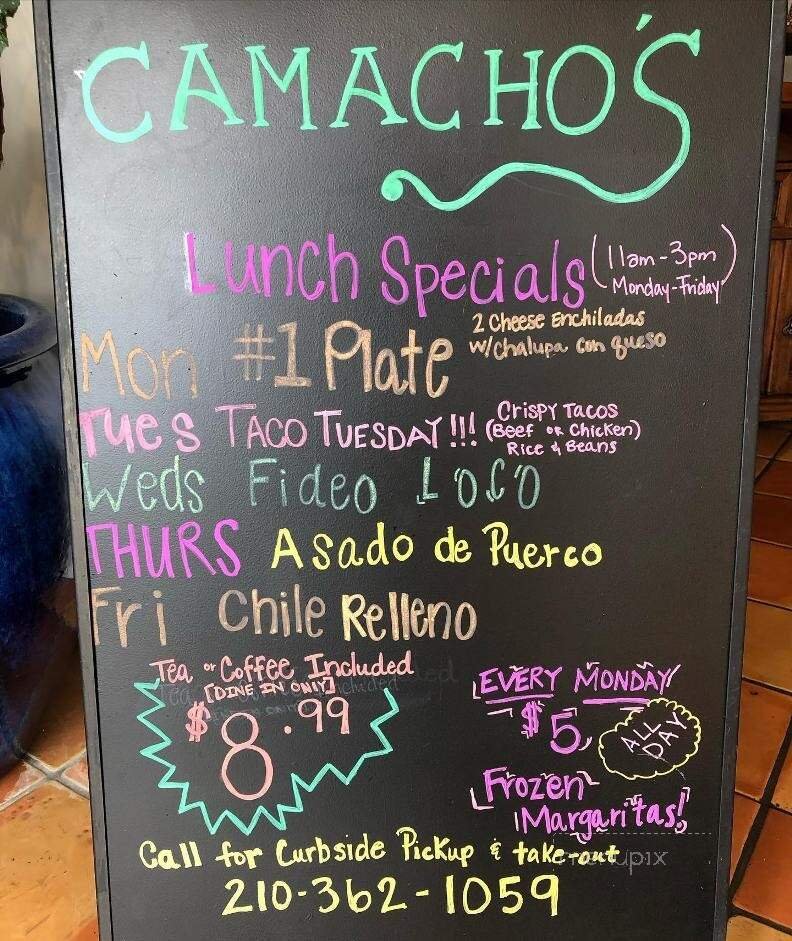 CAMACHO'S
Lunch Specials (11am-3pm Monday-Friday)
Mon #1 Plate 2 Cheese Enchiladas w/chalupa con queso
Tues TACO TUESDAY!!! (Crispy Tacos (Beef or Chicken) Rice & Beans
Weds Fideo Loco
THURS Asado de Puerco
Fri Chile Relleno
Tea or Coffee Included
[DINE IN ONLY]
$8.99
EVERY MONDAY!
$5 ALL DAY
Frozen
Margaritas!
Call for Curbside Pickup & take-out
210-362-1059